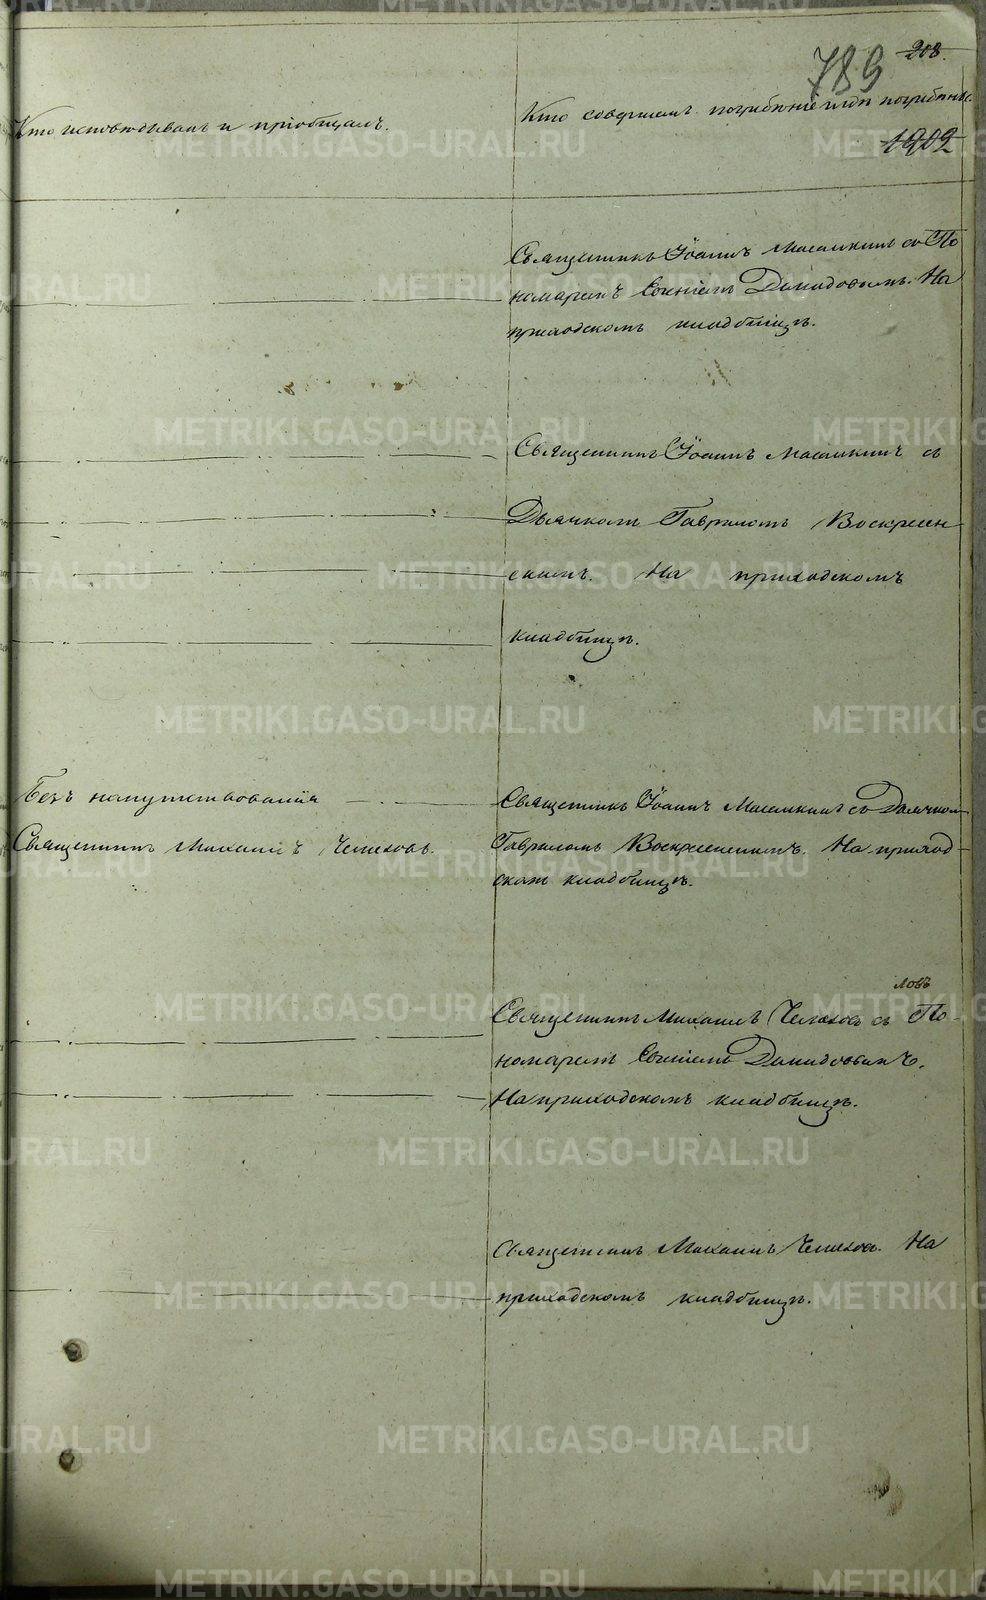 789 208.
Кто исповѣдывалъ и пріобщалъ.
Кто совершалъ погребеніе и гдѣ погребены.
1902
Священникъ Іоаннъ Масалкинъ съ По
номаремъ Демидовымъ. На
приходскомъ кладбищѣ.
Священникъ Іоаннъ Масалкинъ съ
Дьячкомъ Гавриломъ Воскресен
скимъ. На приходскомъ
кладбищѣ.
Безъ напутствованія
Священникъ Михаилъ Чемесовъ.
Священникъ Іоаннъ Масалкинъ съ Дьячком
Гавриломъ Воскресенскимъ. На приход-
скомъ кладбищѣ.
ловъ
Священникъ Михаилъ съ По-
номаремъ Демидовымъ.
На приходскомъ кладбищѣ.
Священникъ Михаилъ На
приходскомъ кладбищѣ.
METRIKI.GASO-URAL.RU